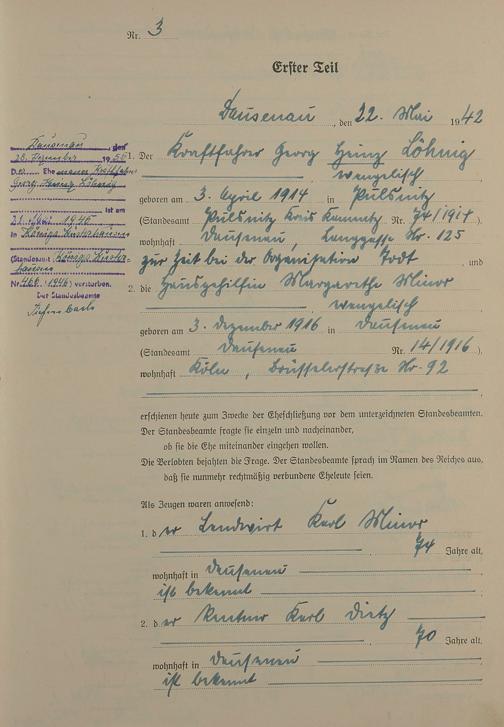 Nr. 3
Erster Teil
Dausenau, den 22. Mai 1942
1. Der Kraftfahrer Georg Heinz Löhnig
evangelisch
geboren am 3. April 1914 in Pulsnitz
(Standesamt Pulsnitz Kreis Kamenz Nr. 74/1914).
wohnhaft Dausenau, Langgasse Nr. 125
zur Zeit bei der Organisation Todt und
2. die Hausgehilfin Margarethe Minor
evangelisch
geboren am 3. Dezember 1916 in Dausenau
(Standesamt Dausenau Nr. 14/1916).
wohnhaft Köln, Brüsselerstraße Nr. 92
erschienen heute zum Zwecke der Eheschließung vor dem unterzeichneten Standesbeamten.
Der Standesbeamte fragte sie einzeln und nacheinander,
ob sie die Ehe miteinander eingehen wollen.
Die Verlobten bejahten die Frage. Der Standesbeamte sprach im Namen des Reiches aus,
daß sie nunmehr rechtmäßig verbundene Eheleute seien.
Als Zeugen waren anwesend:
1. der Landwirt Karl Minor
74 Jahre alt,
wohnhaft in Dausenau
ist bekannt
2. der Rentner Karl Dietz
70 Jahre alt,
wohnhaft in Dausenau
ist bekannt
Dausenau, den
28. Dezember 1950
D.. Ehemann Kraftfahrer
Georg Heinz Löhnig
ist am
1946
in Königs Wusterhausen
(Standesamt Königs Wuster-
hausen
Nr. 1946) verstorben.
Der Standesbeamte